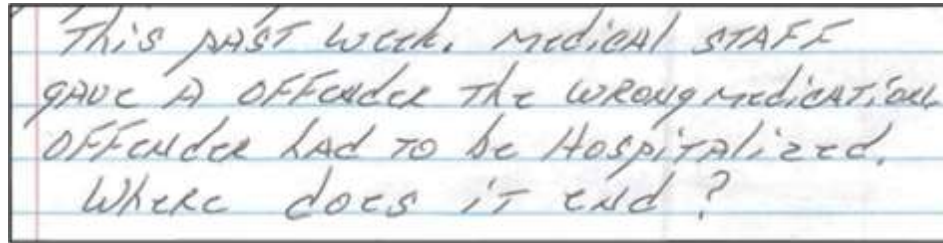 This past week. Medical staff
gave A offender the wrong medication.
Offender had to be Hospitalized.
Where does it end?